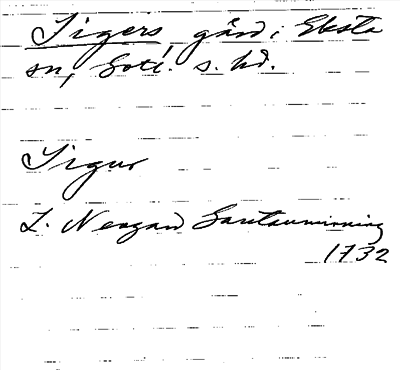 Sigers, gård i Eksta
sn, Gotl. s. hd.
Sigur
L. Neogard Gautauminning
1732